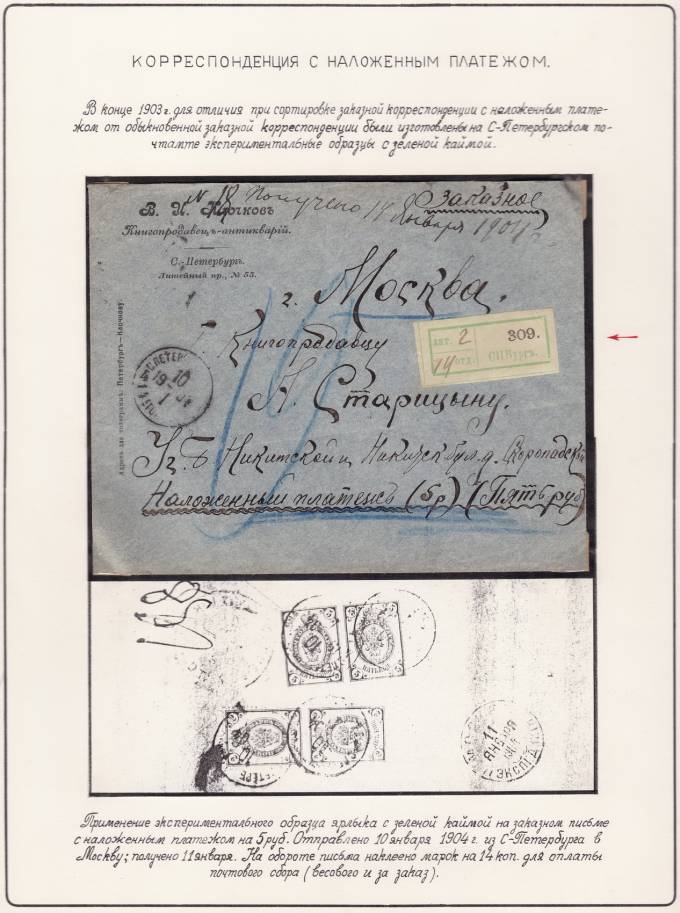 КОРРЕСПОНДЕНЦИЯ С НАЛОЖЕННЫМ ПЛАТЕЖОМ.
В конце 1903 г. для отличия при сортировке заказной корреспонденции с наложенным плате-
жом от обыкновенной заказной корреспонденции были изготовлены на С-Петербургском по-
чтамте экспериментальные образцы с зеленой каймой.
N 18 Получено 14 Января 1904 г.
Заказное
В. И. Клочковъ
Книгопродавецъ-антикварій.
С.-Петербургъ.
Литейный пр., № 55.
Адресъ для телеграммъ: Петербургъ—Клочкову
г. Москва.
Книгопродавцу
А. Старицыну.
Уг. Б Никитской и Никитск бул. д.
Наложенный платежъ (5 р) (Пять руб)
авт. 2
309.
14 отд.
СПбургъ.
10
1
11
ЯНВАРЯ
ЭКСПЕД
Применение экспериментального образца ярлыка с зеленой каймой на заказном письме
с наложенным платежом на 5 руб. Отправлено 10 января 1904 г. из С-Петербурга в
Москву; получено 11 января. На обороте письма наклеено марок на 14 коп. для оплаты
почтового сбора (весового и за заказ).